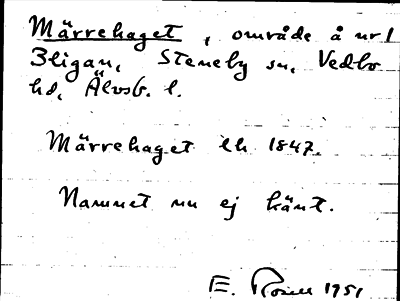 Märrehaget, område å nr 1
Bligan, Steneby sn, Vedbo
hd, Älvsb. l.
Märrehaget lh 1847.
Namnet nu ej känt.
E. 1951